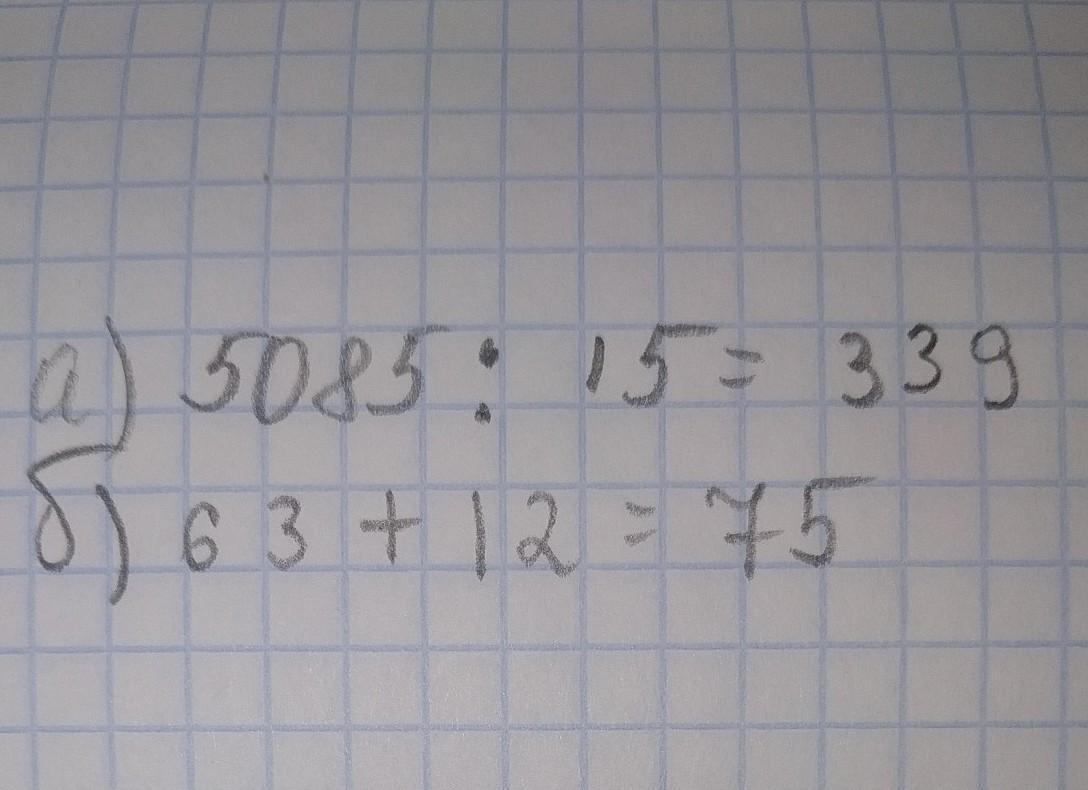 а) 5085 : 15 = 339
б) 63 + 12 = 75